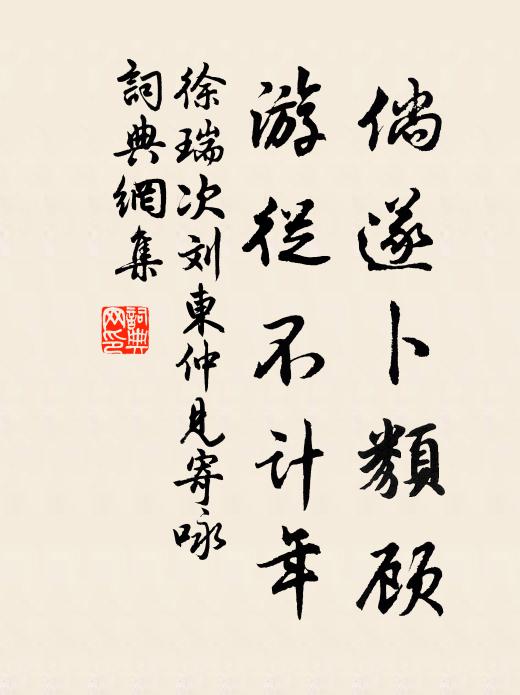 倘遂卜纇顾
游從不计年
徐瑞次刘東仲見寄咏
詞典網集
詞典网印